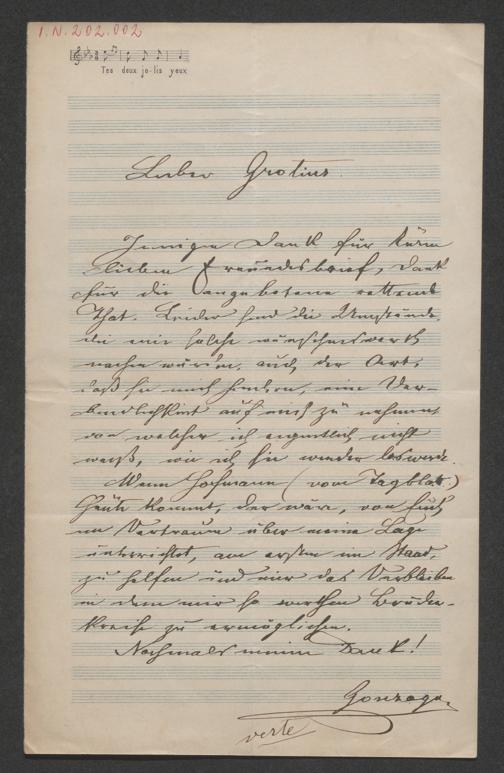 I.N. 202.002
Tes deux jo-lis yeux
Lieber Grotius.
Innigen Dank für Deinen
lieben Freundesbrief, Dank
für die angebotene rettende
That. Leider sind die Umstände,
die mir solche wünschenswerth
machen würden, auch der Art,
daß sie mich hindern, eine Ver-
bindlichkeit auf mich zu nehmen
von welcher ich eigentlich nicht
weiß, wie ich sie wieder los werde.
Wenn Hofmann (vom Tagblatt)
heute kommt, der wäre, von Euch
im Vertrauen über meine Lage
unterrichtet, am ersten im Stande,
zu helfen und mir das Verbleiben
in dem mir so werthen Bruder-
kreise zu ermöglichen.
Nochmals meinen Dank!
Gonzaga.
verte